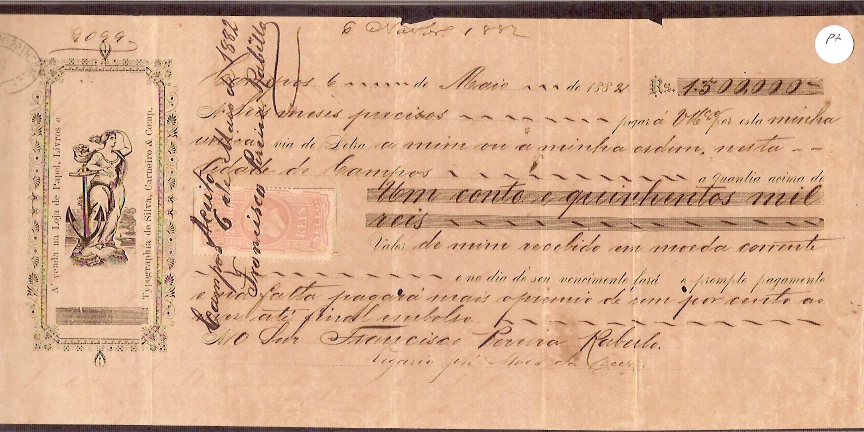 9099
6 Novbre 1882
Pt
Campos 6 de Maio de 1882 Rs. 1.500,000
A seis mezes precisos pagará Vmce por esta minha
unica via de Letra a mim ou a minha ordem, nesta
Cidade de Campos a quantia acima de
Um conto e quinhentos mil
reis
Valor de mim recebido em moeda corrente
e no dia de seu vencimento fará o prompto pagamento
e na falta pagará mais o premio de um por cento ao
até final embolso
Ao Snr Francisco Pereira Rabello
A' venda na Loja de Papel, Livros e
Typographia de Silva, Carneiro & Comp.
Acceito
Campos 6 de Maio de 1882
Francisco Pereira Rabello
REIS